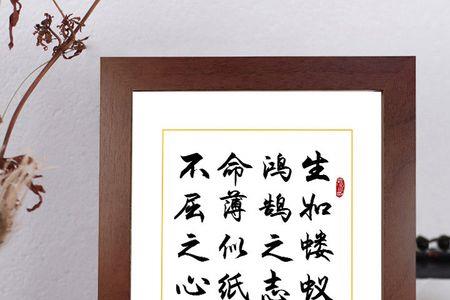 生如蝼蚁
鸿鹄之志
命薄似纸
不屈之心